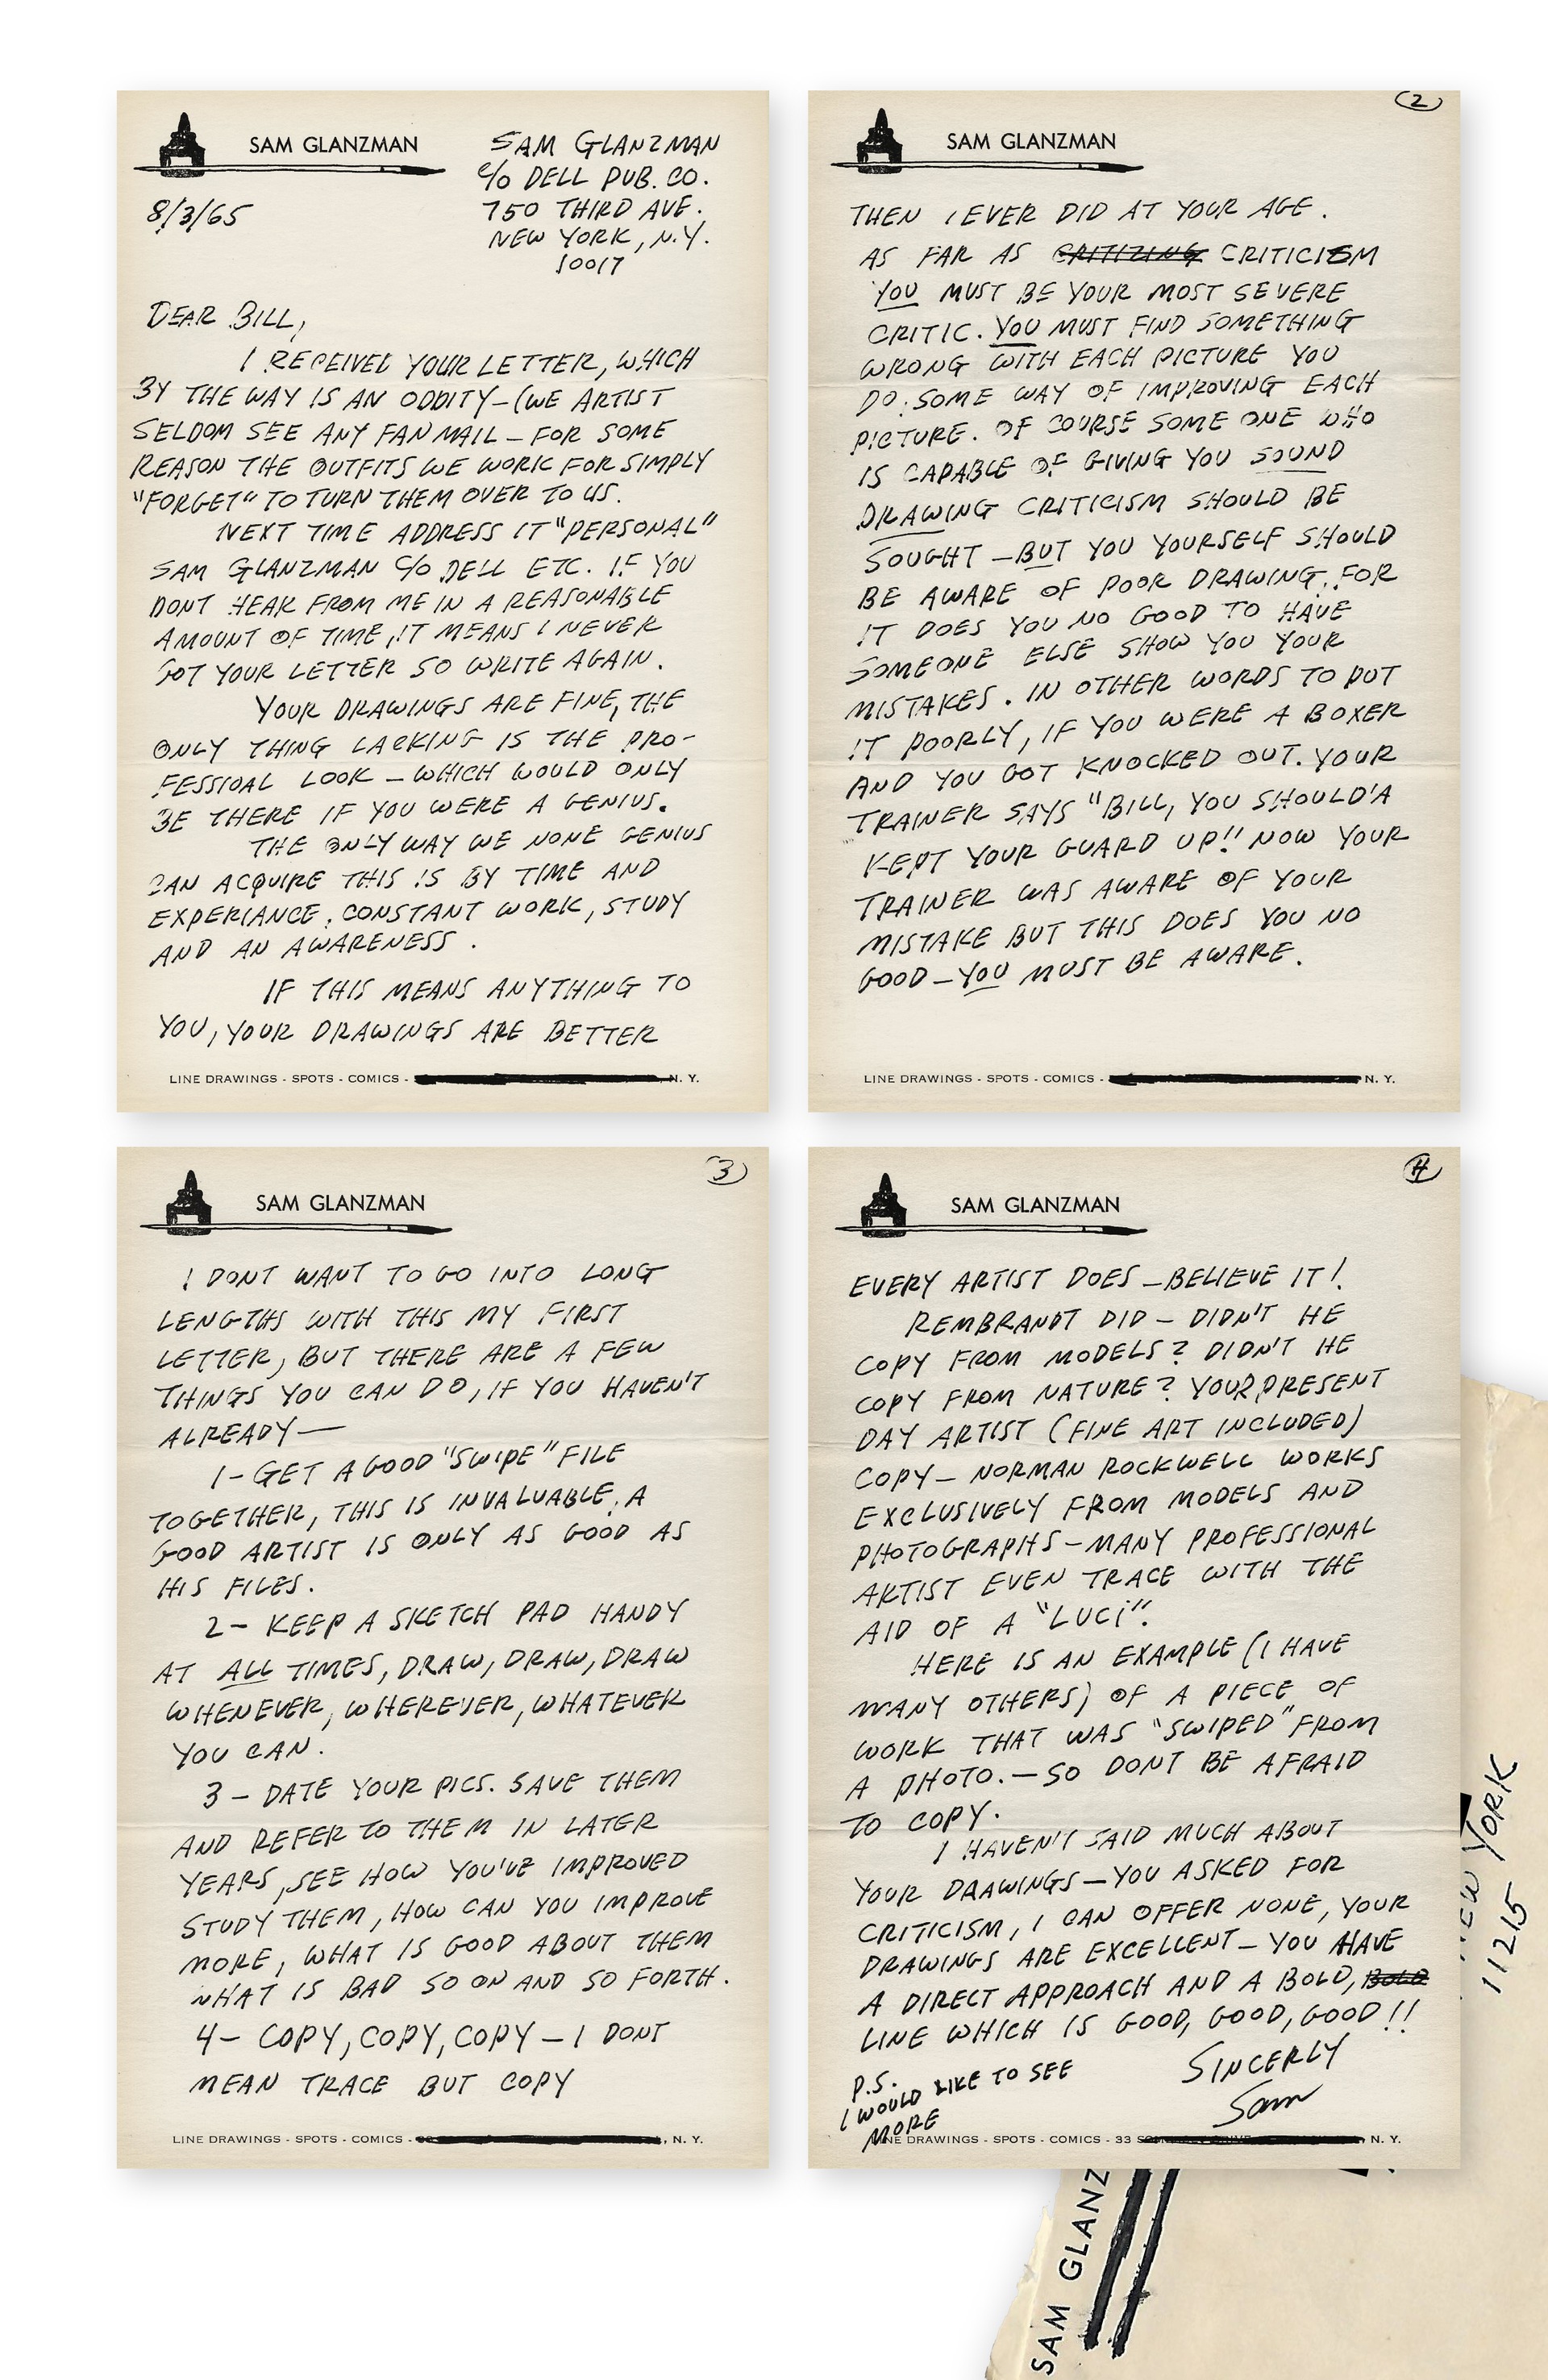 SAM GLANZMAN
SAM GLANZMAN
C/O DELL PUB. CO.
750 THIRD AVE.
NEW YORK, N.Y.
10017
8/3/65
DEAR BILL,
I RECEIVED YOUR LETTER, WHICH
BY THE WAY IS AN ODDITY—(WE ARTIST
SELDOM SEE ANY FAN MAIL — FOR SOME
REASON THE OUTFITS WE WORK FOR SIMPLY
"FORGET" TO TURN THEM OVER TO US.
NEXT TIME ADDRESS IT "PERSONAL"
SAM GLANZMAN C/O DELL ETC. IF YOU
DONT HEAR FROM ME IN A REASONABLE
AMOUNT OF TIME, IT MEANS I NEVER
GOT YOUR LETTER SO WRITE AGAIN.
YOUR DRAWINGS ARE FINE, THE
ONLY THING LACKING IS THE PRO-
FESSIOAL LOOK — WHICH WOULD ONLY
BE THERE IF YOU WERE A GENIUS.
THE ONLY WAY WE NONE GENIUS
CAN ACQUIRE THIS IS BY TIME AND
EXPERIANCE. CONSTANT WORK, STUDY
AND AN AWARENESS.
IF THIS MEANS ANYTHING TO
YOU, YOUR DRAWINGS ARE BETTER
LINE DRAWINGS - SPOTS - COMICS - N. Y.
2
SAM GLANZMAN
THEN I EVER DID AT YOUR AGE.
AS FAR AS CRITIZING CRITICISM
YOU MUST BE YOUR MOST SEVERE
CRITIC. YOU MUST FIND SOMETHING
WRONG WITH EACH PICTURE YOU
DO. SOME WAY OF IMPROVING EACH
PICTURE. OF COURSE SOME ONE WHO
IS CAPABLE OF GIVING YOU SOUND
DRAWING CRITICISM SHOULD BE
SOUGHT — BUT YOU YOURSELF SHOULD
BE AWARE OF POOR DRAWING. FOR
IT DOES YOU NO GOOD TO HAVE
SOMEONE ELSE SHOW YOU YOUR
MISTAKES. IN OTHER WORDS TO PUT
IT POORLY, IF YOU WERE A BOXER
AND YOU GOT KNOCKED OUT. YOUR
TRAINER SAYS "BILL, YOU SHOULD'A
KEPT YOUR GUARD UP!! NOW YOUR
TRAINER WAS AWARE OF YOUR
MISTAKE BUT THIS DOES YOU NO
GOOD — YOU MUST BE AWARE.
LINE DRAWINGS - SPOTS - COMICS - N. Y.
3
SAM GLANZMAN
I DONT WANT TO GO INTO LONG
LENGTHS WITH THIS MY FIRST
LETTER, BUT THERE ARE A FEW
THINGS YOU CAN DO, IF YOU HAVEN'T
ALREADY —
1- GET A GOOD "SWIPE" FILE
TOGETHER, THIS IS INVALUABLE. A
GOOD ARTIST IS ONLY AS GOOD AS
HIS FILES.
2- KEEP A SKETCH PAD HANDY
AT ALL TIMES, DRAW, DRAW, DRAW
WHENEVER, WHEREVER, WHATEVER
YOU CAN.
3 - DATE YOUR PICS. SAVE THEM
AND REFER TO THEM IN LATER
YEARS, SEE HOW YOU'VE IMPROVED
STUDY THEM, HOW CAN YOU IMPROVE
MORE, WHAT IS GOOD ABOUT THEM
WHAT IS BAD SO ON AND SO FORTH.
4- COPY, COPY, COPY — I DONT
MEAN TRACE BUT COPY
LINE DRAWINGS - SPOTS - COMICS - , N. Y.
4
SAM GLANZMAN
EVERY ARTIST DOES — BELIEVE IT!
REMBRANDT DID — DIDN'T HE
COPY FROM MODELS? DIDN'T HE
COPY FROM NATURE? YOUR PRESENT
DAY ARTIST (FINE ART INCLUDED)
COPY — NORMAN ROCKWELL WORKS
EXCLUSIVELY FROM MODELS AND
PHOTOGRAPHS — MANY PROFESSIONAL
ARTIST EVEN TRACE WITH THE
AID OF A "LUCI".
HERE IS AN EXAMPLE (I HAVE
MANY OTHERS) OF A PIECE OF
WORK THAT WAS "SWIPED" FROM
A PHOTO. — SO DONT BE AFRAID
TO COPY.
I HAVEN'T SAID MUCH ABOUT
YOUR DRAWINGS — YOU ASKED FOR
CRITICISM, I CAN OFFER NONE, YOUR
DRAWINGS ARE EXCELLENT — YOU HAVE
A DIRECT APPROACH AND A BOLD, BOLD
LINE WHICH IS GOOD, GOOD, GOOD!!
SINCERLY
Sam
P.S.
I WOULD LIKE TO SEE
MORE
LINE DRAWINGS - SPOTS - COMICS - 33 , N. Y.
NEW YORK
11215
SAM GLANZ